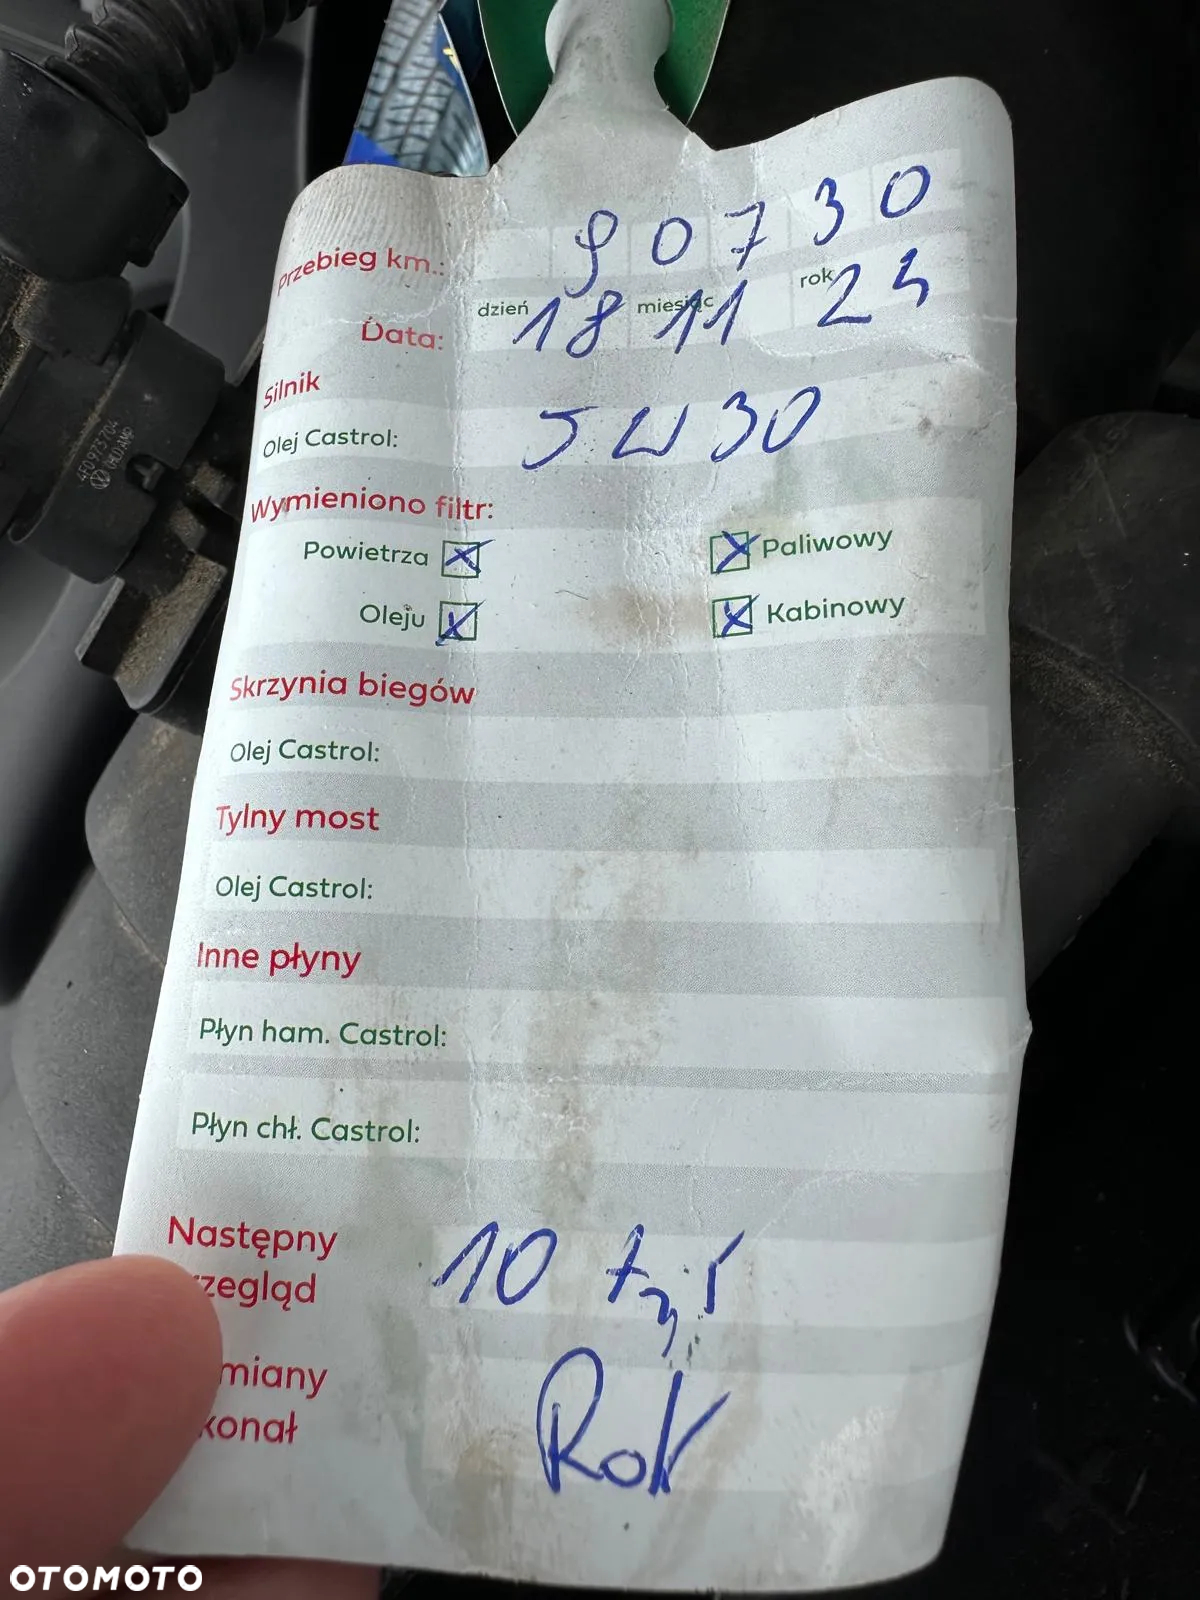 Przebieg km.: 90730
dzień miesiąc rok
Data: 18 11 24
Silnik
Olej Castrol: 5W30
Wymieniono filtr:
Powietrza X X Paliwowy
Oleju X X Kabinowy
Skrzynia biegów
Olej Castrol:
Tylny most
Olej Castrol:
Inne płyny
Płyn ham. Castrol:
Płyn chł. Castrol:
Następny 10 tyś
rzegląd
miany Rok
konał
4E0973704
OTOMOTO